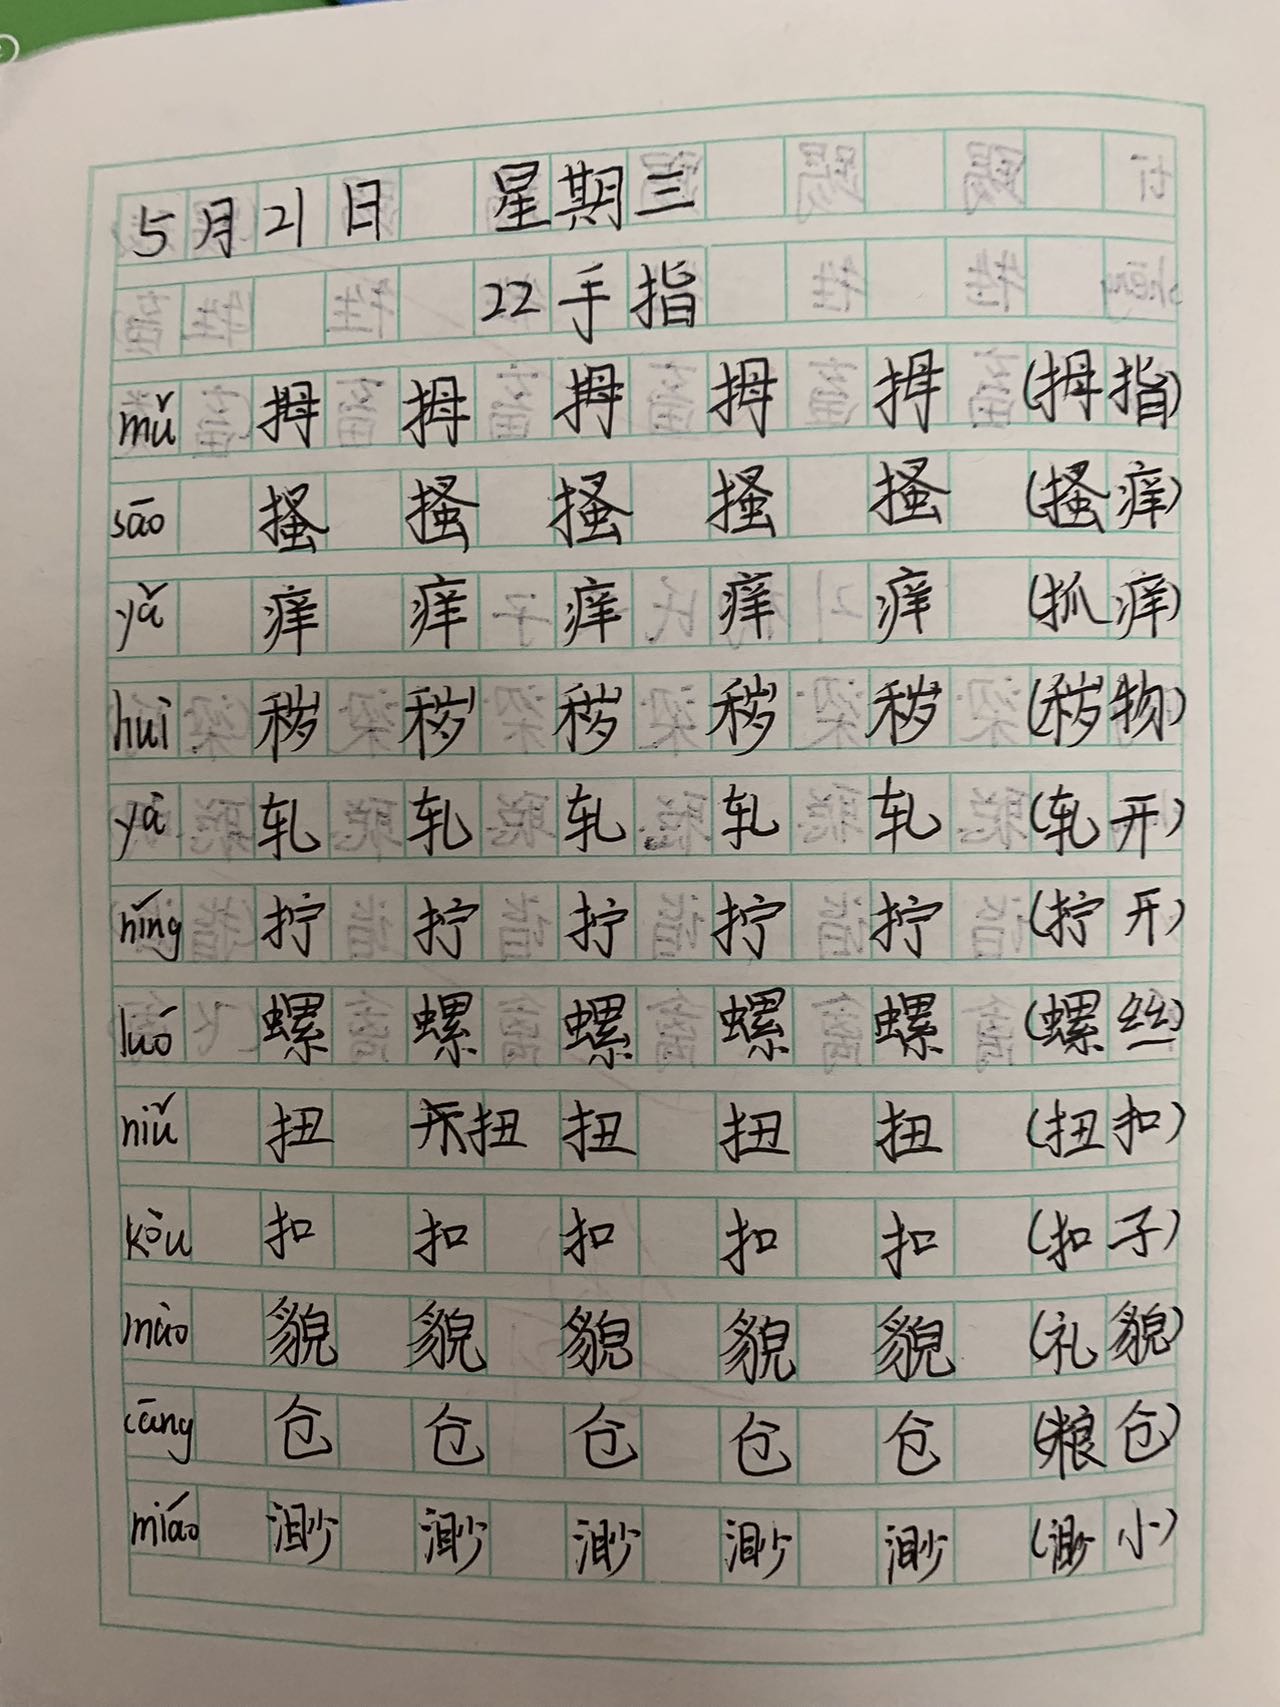 5月21日 星期三
22手指
mǔ 拇 拇 拇 拇 拇 (拇指)
sāo 搔 搔 搔 搔 搔 (搔痒)
yǎ 痒 痒 痒 痒 痒 (抓痒)
huì 秽 秽 秽 秽 秽 (秽物)
yà 轧 轧 轧 轧 轧 (轧开)
nǐng 拧 拧 拧 拧 拧 (拧开)
luó 螺 螺 螺 螺 螺 (螺丝)
niǔ 扭 扭 扭 扭 扭 (扭扣)
kòu 扣 扣 扣 扣 扣 (扣子)
mào 貌 貌 貌 貌 貌 (礼貌)
cāng 仓 仓 仓 仓 仓 (粮仓)
miáo 渺 渺 渺 渺 渺 (渺小)